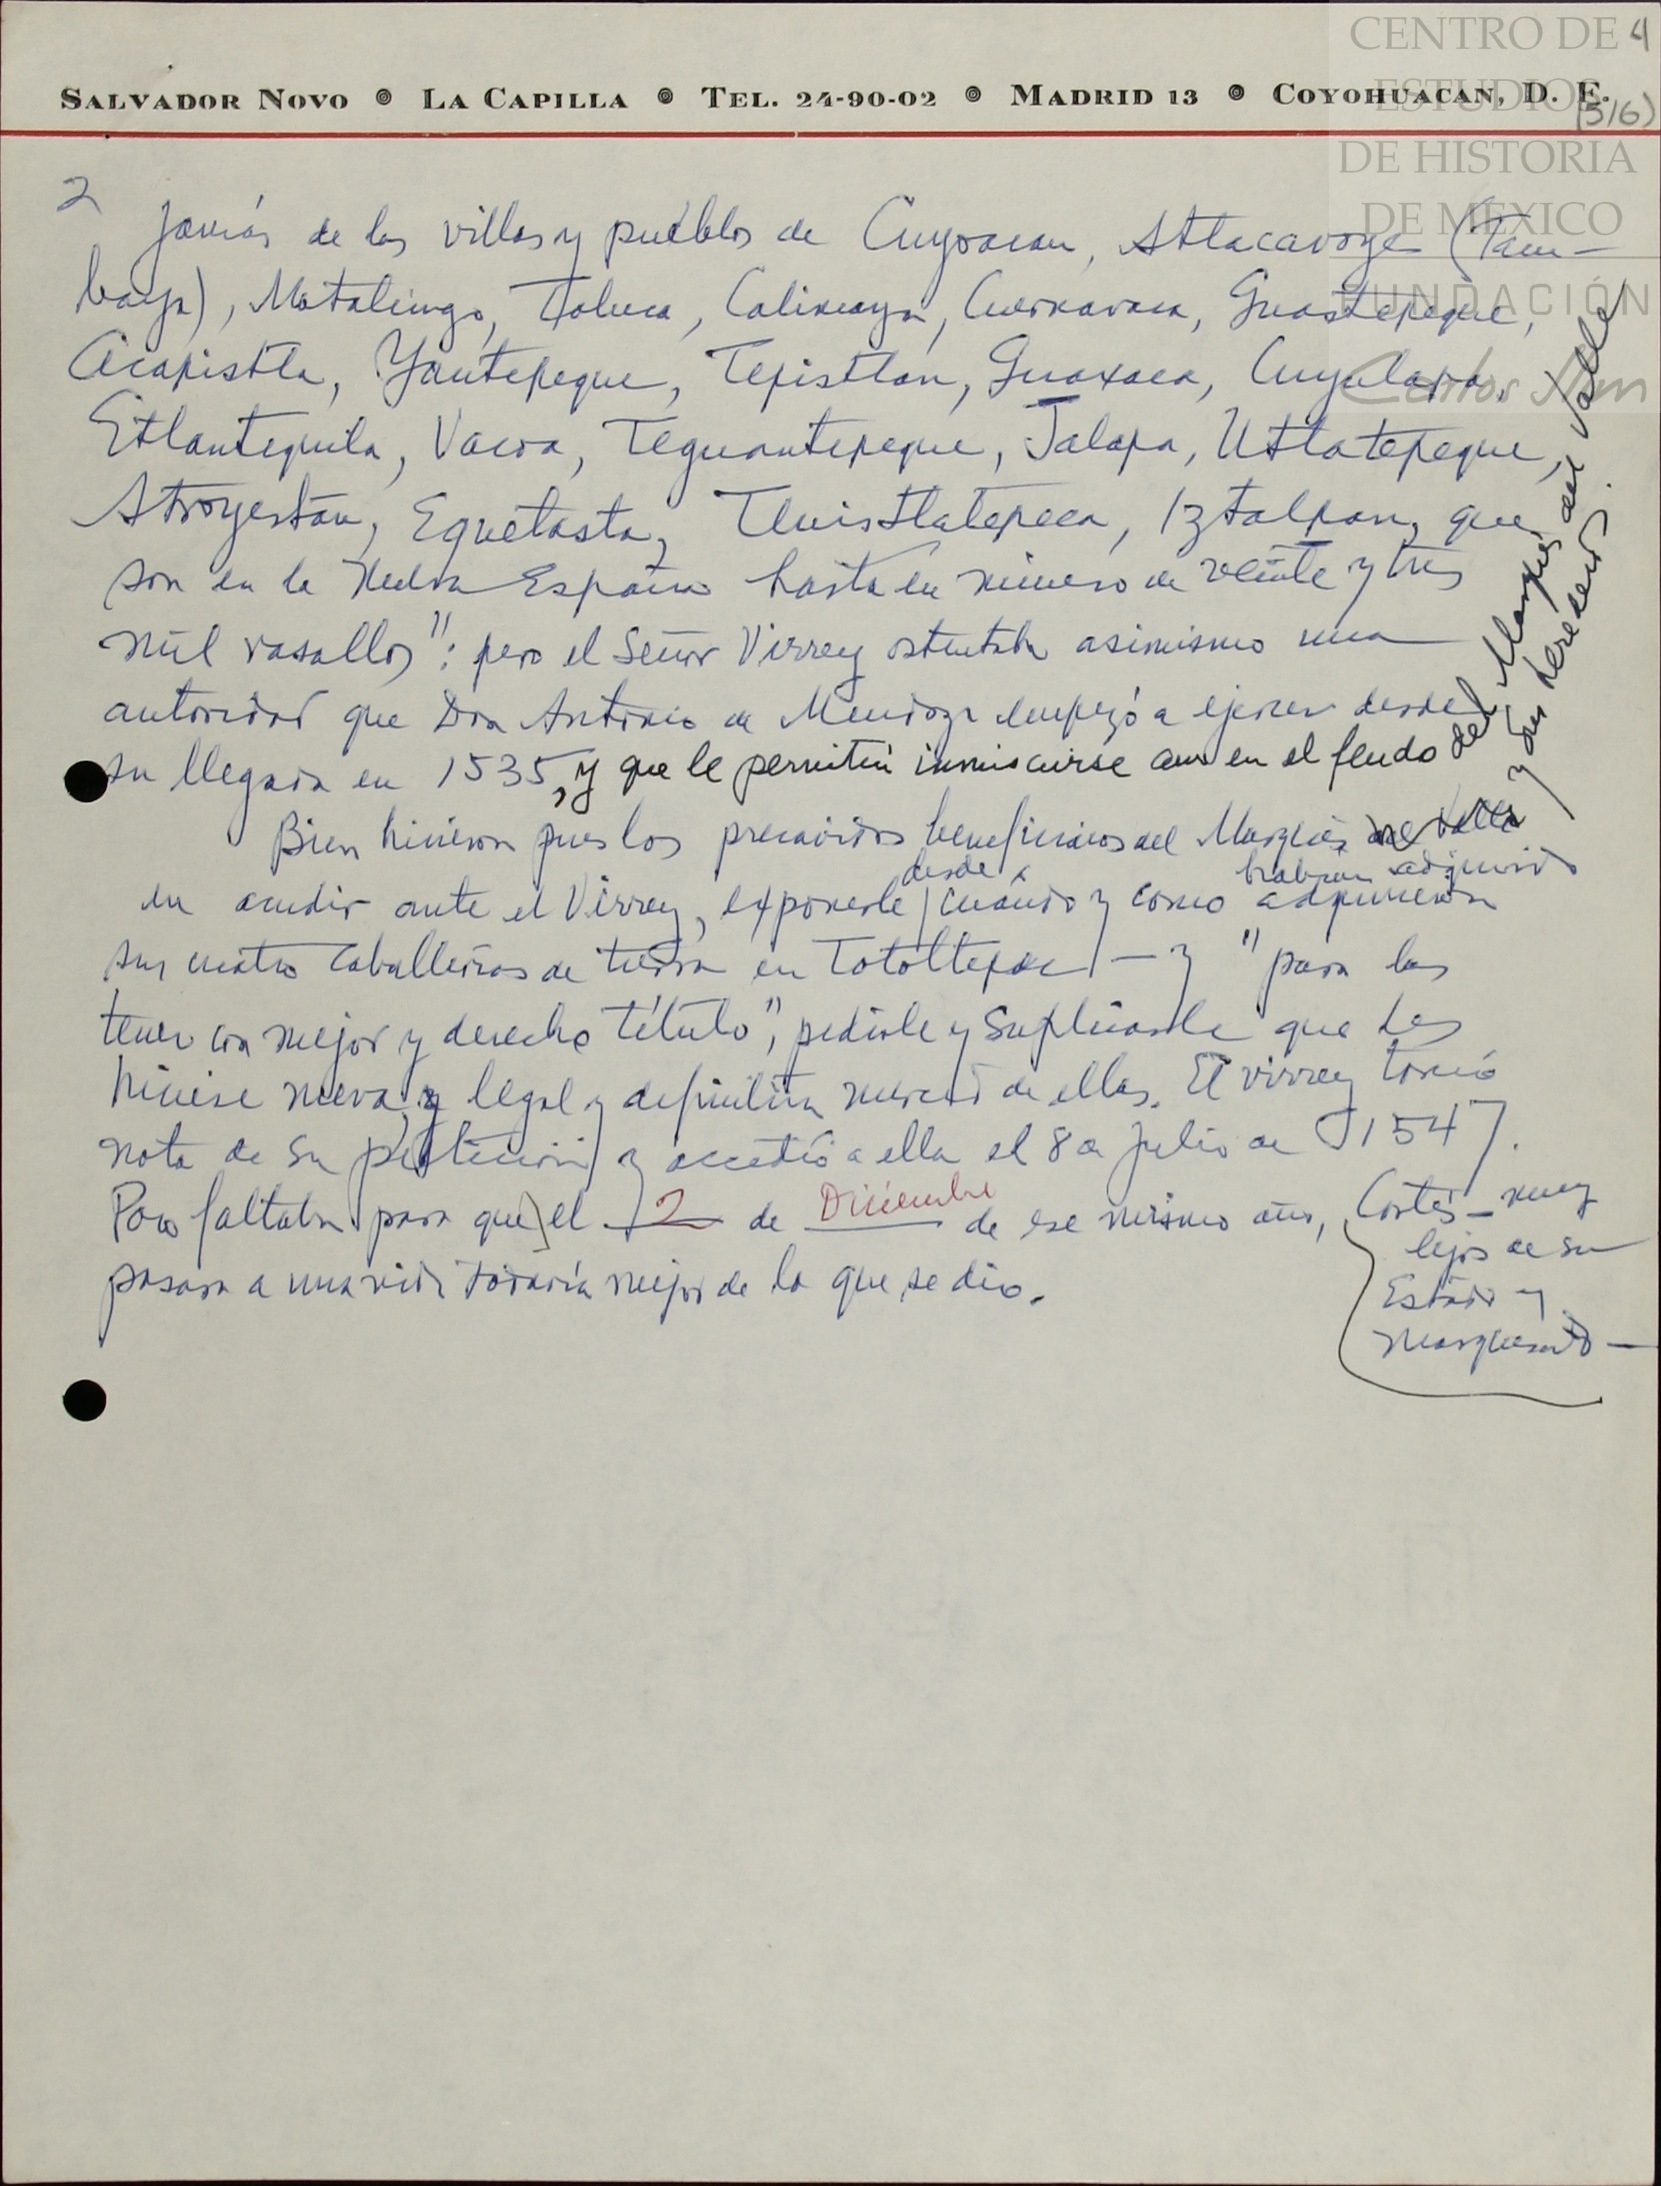 CENTRO DE
ESTUDIOS
DE HISTORIA
DE MÉXICO
FUNDACIÓN
Carlos Slim
4
(516)
SALVADOR NOVO ⊚ LA CAPILLA ⊚ TEL. 24-90-02 ⊚ MADRID 13 ⊚ COYOHUACAN, D. F.
2
jamás de las villas y pueblos de Cuyoacan, Atlacavoye (Tacu-
baya), Matalingo, Toluca, Calimaya, Cuernavaca, Guastepeque,
Acapistla, Yautepeque, Tepistlan, Guaxaca, Cuyulapa,
Etlantequila, Vacoa, Teguantepeque, Jalapa, Utlatepeque,
Atroyestan, Equetasta, Tluistlatepeca, Iztalpan, que
son en la Nueva España hasta en número de veinte y tres
mil vasallos"; pero el Señor Virrey ostentaba asimismo una
autoridad que Don Antonio de Mendoza empezó a ejercer desde
su llegada en 1535, y que le permitía inmiscuirse aun en el feudo del Marqués del Valle
y sus herederos.
Bien hicieron pues los precavidos beneficiarios del Marqués del Valle
en acudir ante el Virrey, exponerle desde cuándo y como adquirieron habían adquirido
sus cuatro caballerías de tierra en Totoltepec — y "para las
tener con mejor y derecho título", pedirle y suplicarle que les
hiciese nueva, y legal y definitiva merced de ellas. El virrey tomó
nota de su petición y accedió a ella el 8 de Julio de 1547.
Poco faltaba para que el 2 de Diciembre de ese mismo año, Cortés — muy
lejos de su
Estado y
Marquesado —
pasara a una vida todavía mejor de la que se dio.